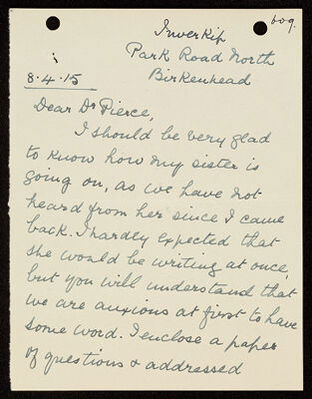 609.
Inverkip
Park Road North
Birkenhead
8.4.15
Dear Dr Pierce,
I should be very glad
to know how my sister is
going on, as we have not
heard from her since I came
back. I hardly expected that
she would be writing at once,
but you will understand that
we are anxious at first to have
some word. I enclose a paper
of questions & addressed